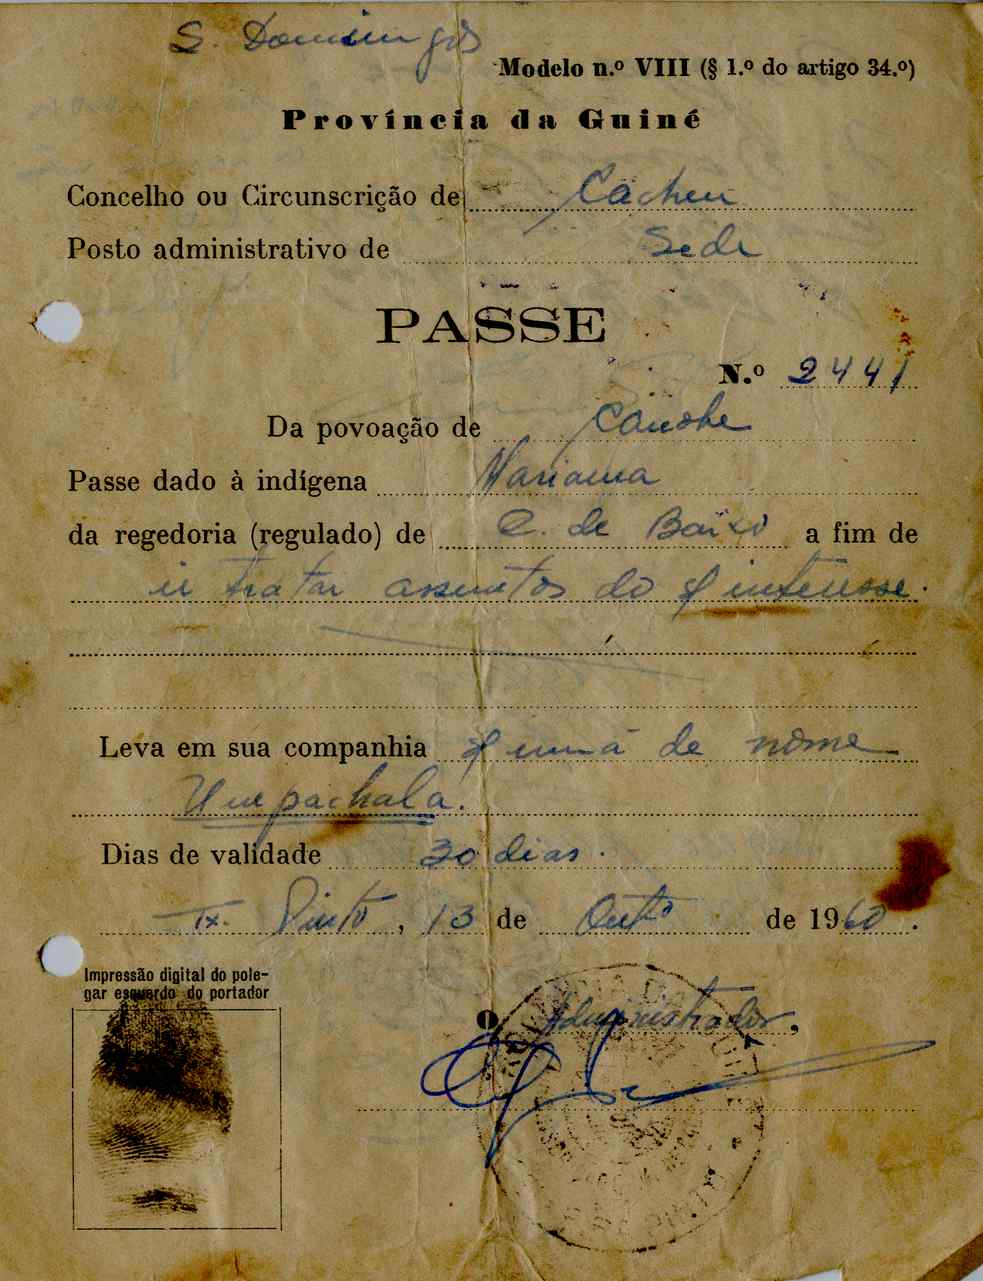 S. Domingos
Modelo n.º VIII (§ 1.º do artigo 34.º)
Província da Guiné
Concelho ou Circunscrição de Cacheu
Posto administrativo de Sede
PASSE
N.º 2441
Da povoação de Canobe
Passe dado à indígena Mariama
da regedoria (regulado) de C. de Baixo a fim de
ir tratar assuntos do s/ interesse.
Leva em sua companhia s/ irmã de nome
Umpachala.
Dias de validade 30 dias.
Tx. Pinto, 13 de Outº de 1960.
Impressão digital do pole-
gar esquerdo do portador
O Administrador,